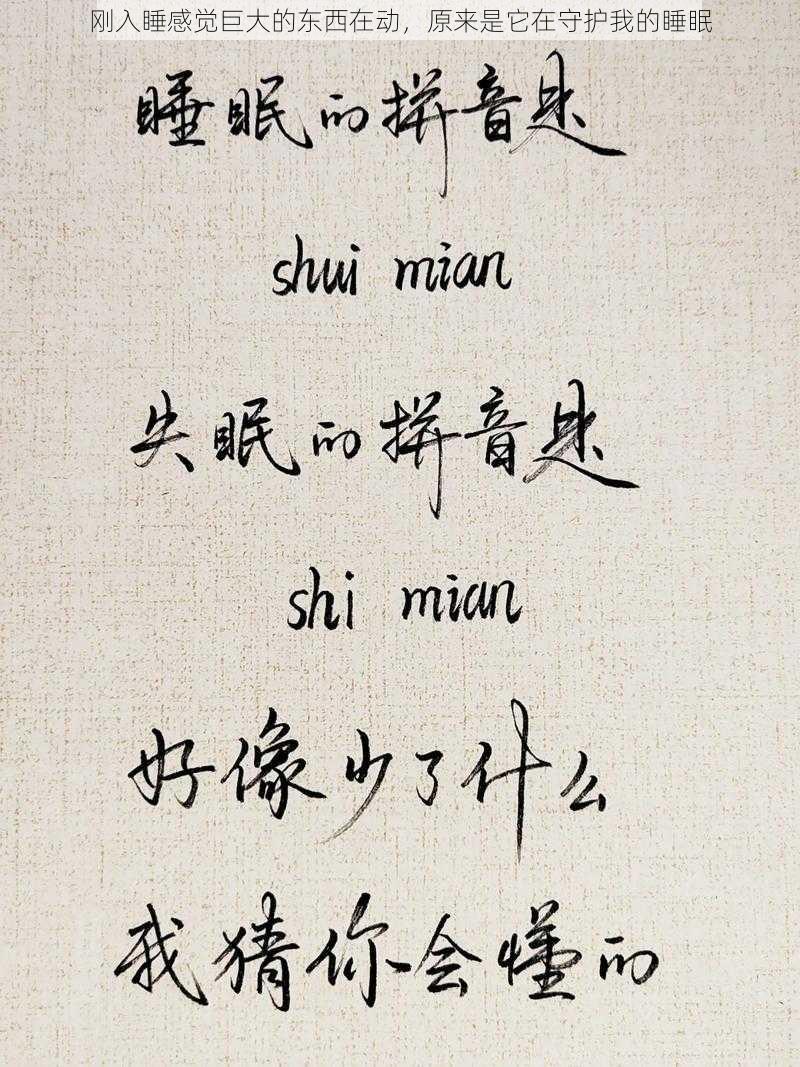 刚入睡感觉巨大的东西在动，原来是它在守护我的睡眠
睡眠的拼音是
shui mian
失眠的拼音是
shi mian
好像少了什么
我猜你会懂的